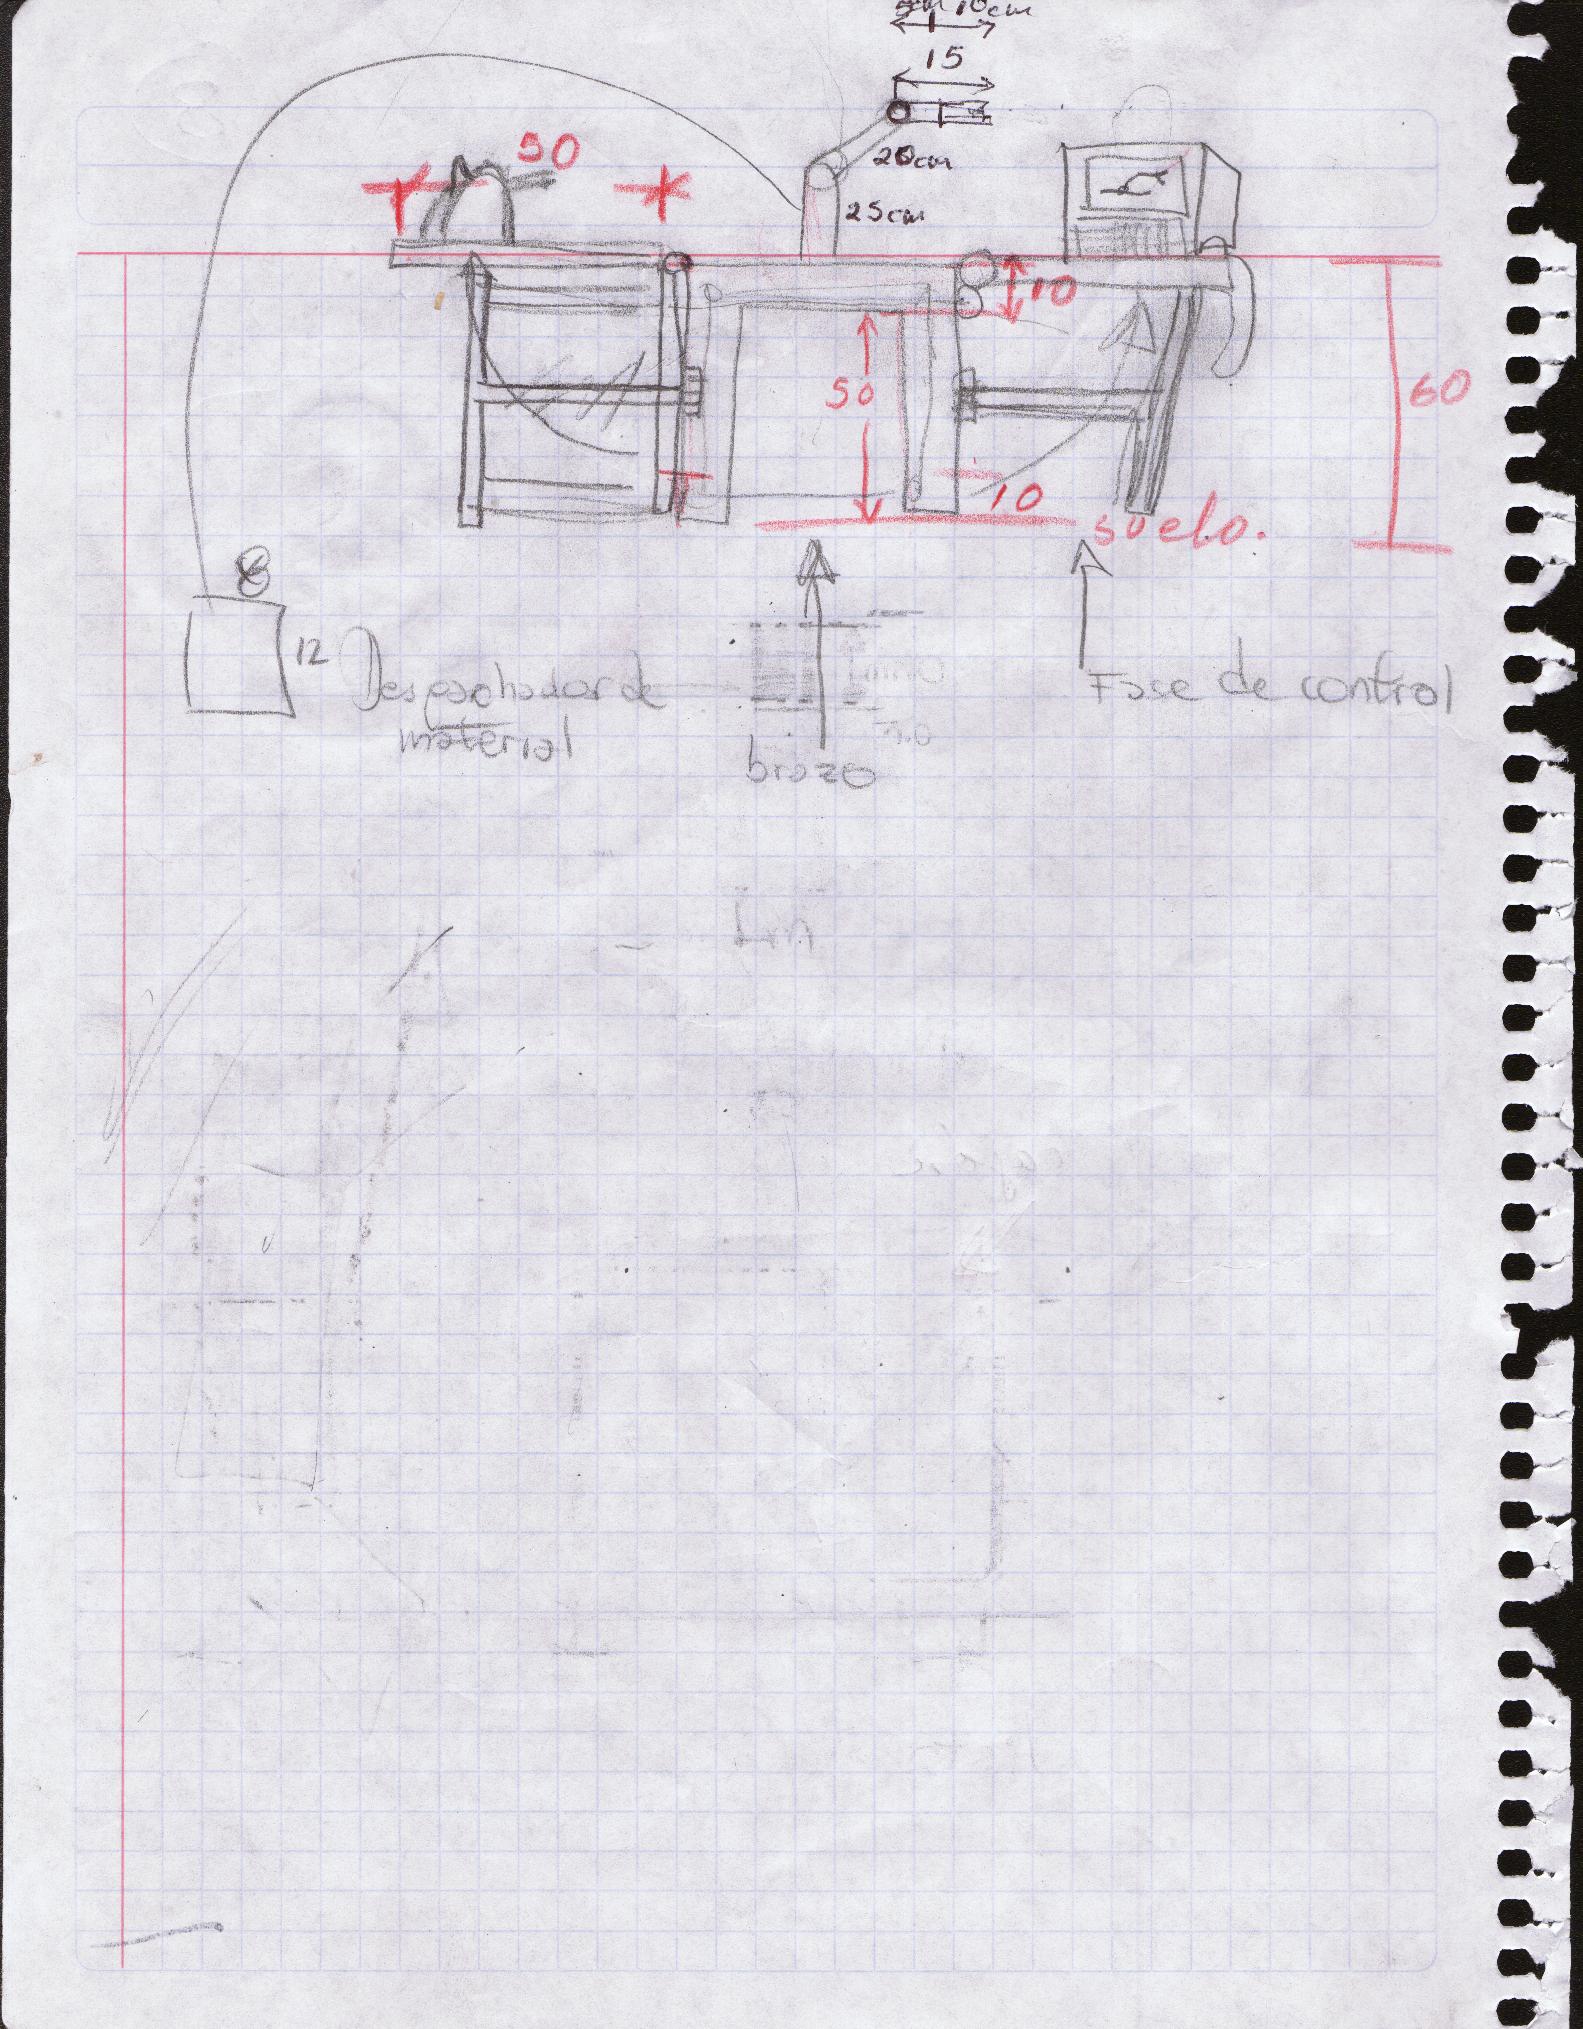 10cm
15
50
20cm
25cm
10
50
60
10
suelo.
8
12
Despachador de
material
brazo
Fase de control